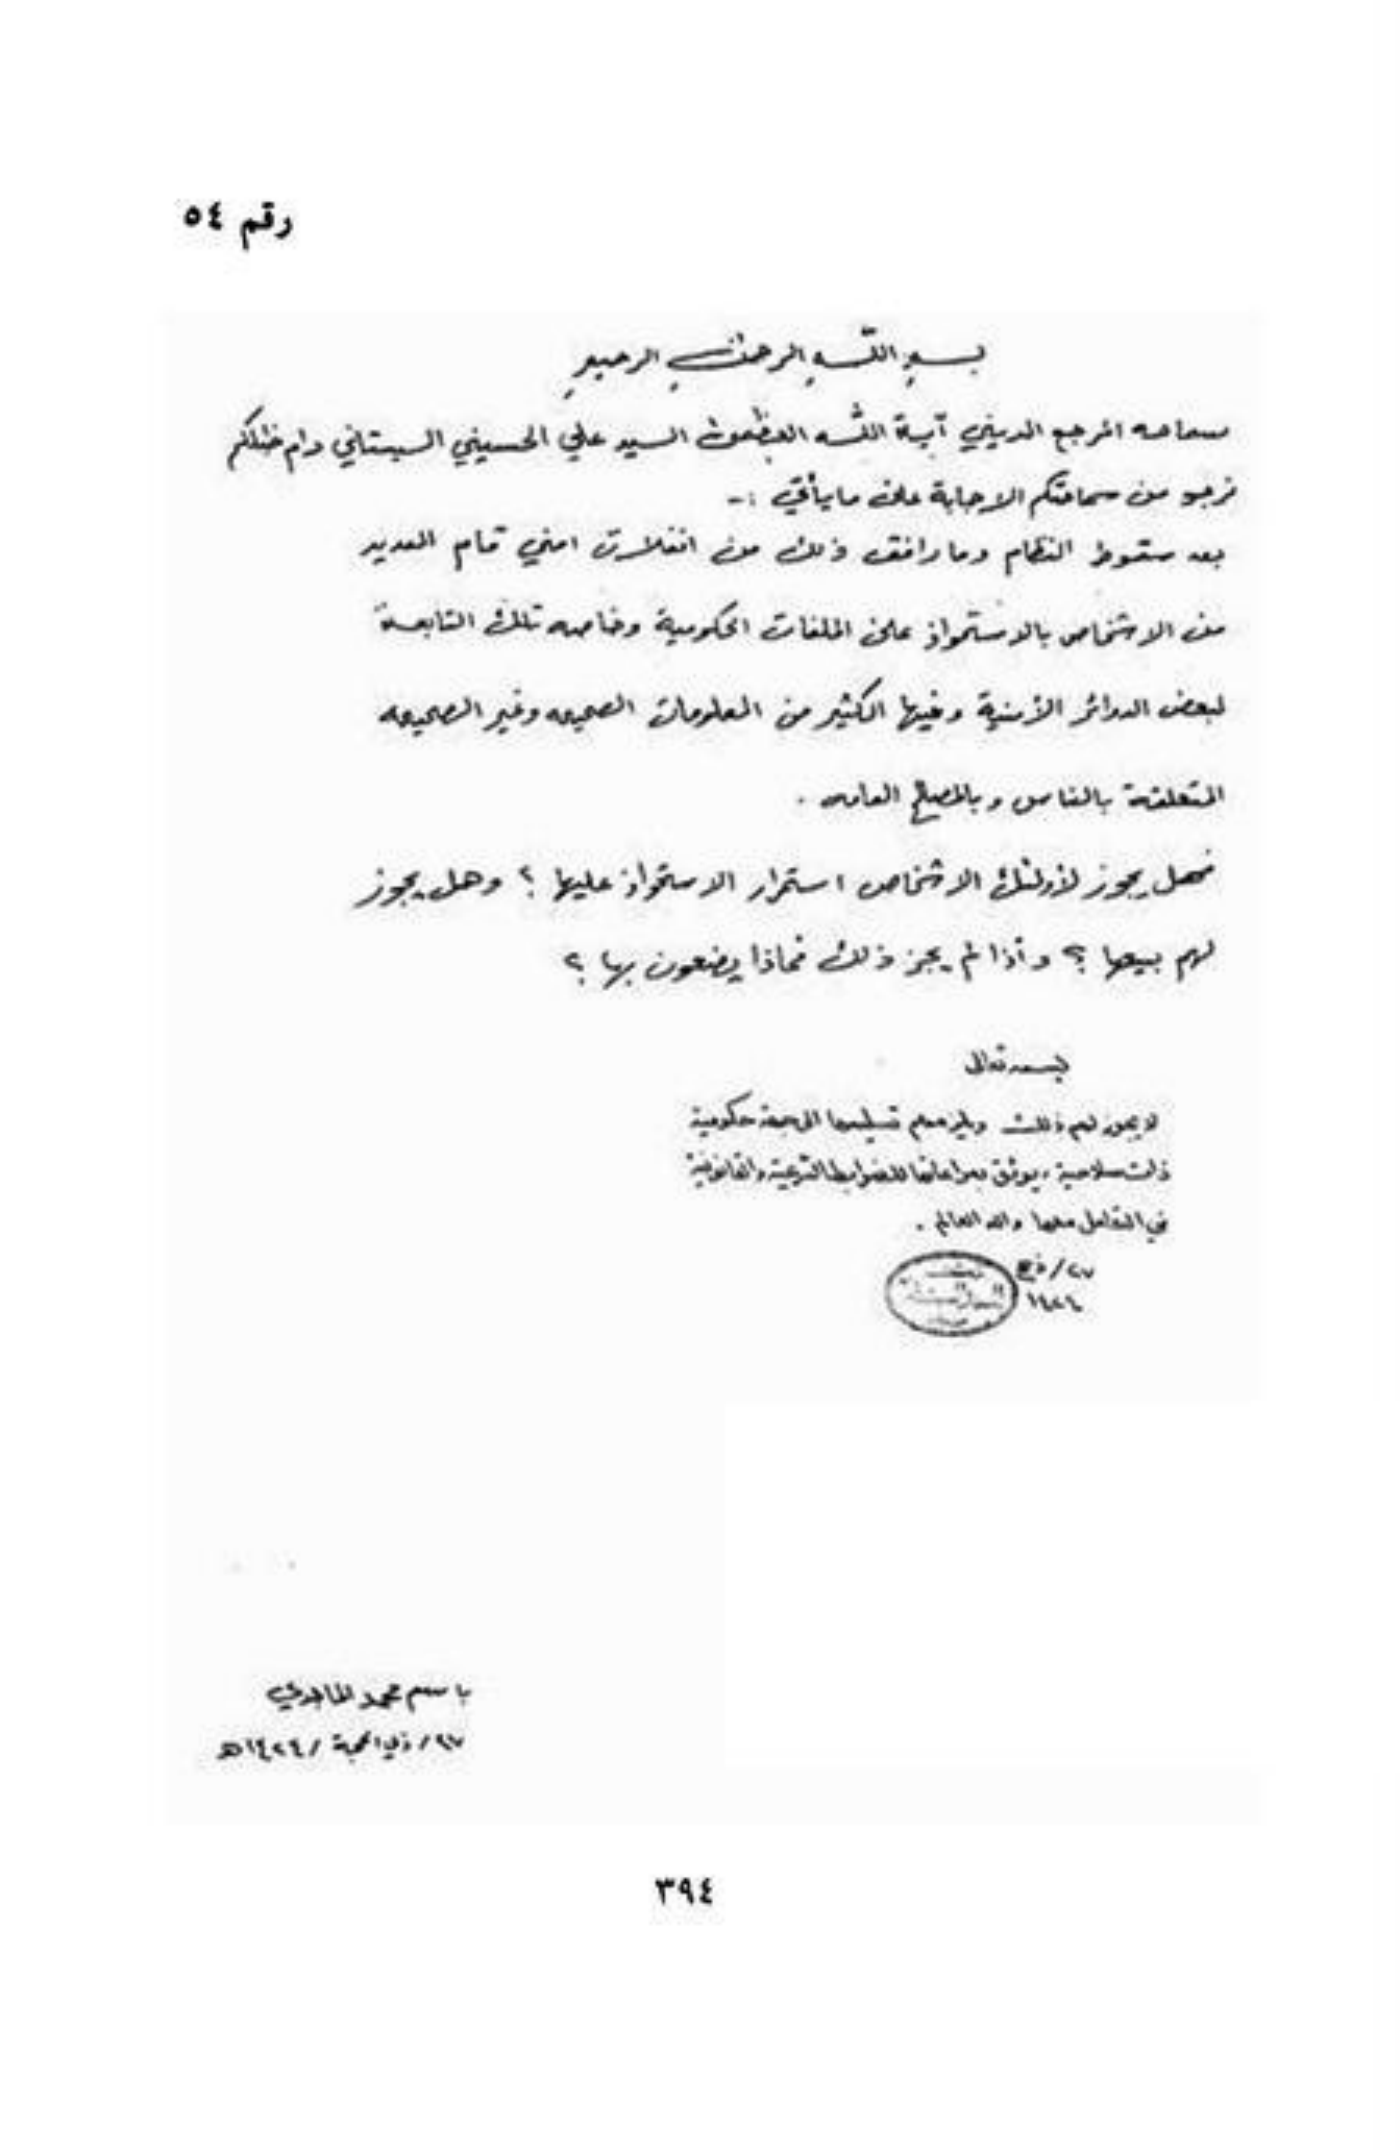 رقم ٥٤
بسم الله الرحمن الرحيم
سماحه المرجع الديني آية الله العظمى السيد علي الحسيني السيستاني دام ظلكم
نرجو من سماحتكم الاجابة على مايأتي :-
بعد سقوط النظام وما رافق ذلك من انفلات امني قام العديد
من الاشخاص بالاستحواذ على الملفات الحكومية وخاصه تلك التابعة
لبعض الدوائر الأمنية وفيها الكثير من المعلومات الصحيحه وغير الصحيحه
المتعلقة بالناس وبالمصالح العامه .
فهل يجوز لأولئك الاشخاص استمرار الاستحواذ عليها ؟ وهل يجوز
لهم بيعها ؟ وأذا لم يجز ذلك فماذا يصنعون بها ؟
بسمه تعالى
لا يجوز لهم ذلك ويلزمهم تسليمها الى جهة حكومية
ذات صلاحية ، يوثق بمراعاتها للضوابط الشرعية والقانونية
في التعامل معها والله العالم .
٢٧/ذح
١٤٢٤
باسم محمد الماجدي
٢٧/ذي الحجة/١٤٢٤هـ
٣٩٤